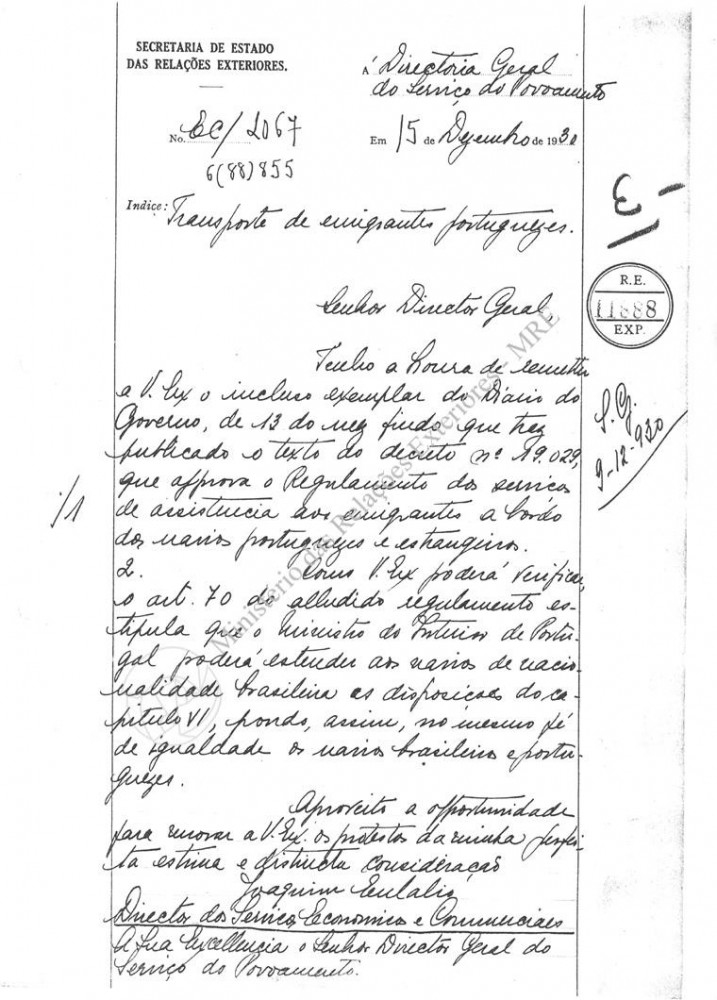 SECRETARIA DE ESTADO
DAS RELAÇÕES EXTERIORES.
Á Directoria Geral
do Serviço do Povoamento
No. EC/2067
6(88)855
Em 15 de Dezembro de 1930
Indice: Transporte de emigrantes portuguezes.
R.E.
11888
EXP.
S.G.
9-12-930
Senhor Director Geral,
Tenho a honra de remetter
a V. Ex o incluso exemplar do Diario do
Governo, de 13 do mez findo, que traz
publicado o texto do decreto nº 19.029,
que approva o Regulamento dos serviços
de assistencia aos emigrantes a bordo
dos navios portuguezes e estrangeiros.
/1
2. Como V. Ex poderá verificar,
o art. 70 do alludido regulamento es-
tipula que o Ministro do Interior de Portu-
gal poderá estender aos navios de nacio-
nalidade brasileira as disposições do ca-
pitulo VI, pondo, assim, no mesmo pé
de igualdade os navios brasileiros e portu-
guezes.
Aproveito a opportunidade
para renovar a V. Ex. os protestos da minha perfei-
ta estima e distincta consideração
Joaquim Eulalio
Director dos Serviços Economicos e Commerciaes
A Sua Excellencia o Senhor Director Geral do
Serviço do Povoamento.
Ministério das Relações Exteriores - MRE